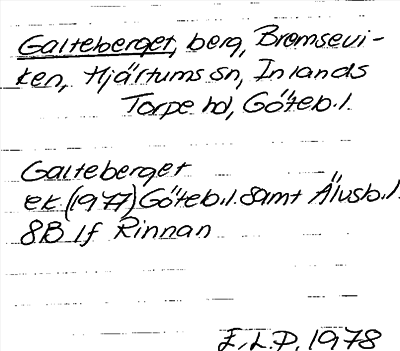 Galteberget, berg, Bremsevi-
ken, Hjärtums sn, Inlands
Torpe hd, Göteb.l.
Galteberget
ek. (1977) Göteb.l. samt Älvsb.l.
8B 1f Rinnan
E.L.P. 1978